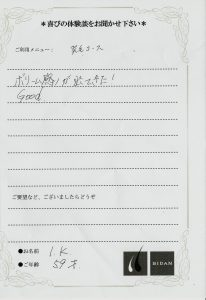 ＊喜びの体験談をお聞かせ下さい＊
ご利用メニュー： 髪毛コース
ボリューム感が出てきた！
Good
ご要望など、ございましたらどうぞ
●お名前 I.K
●ご年齢 59才
BIDAN